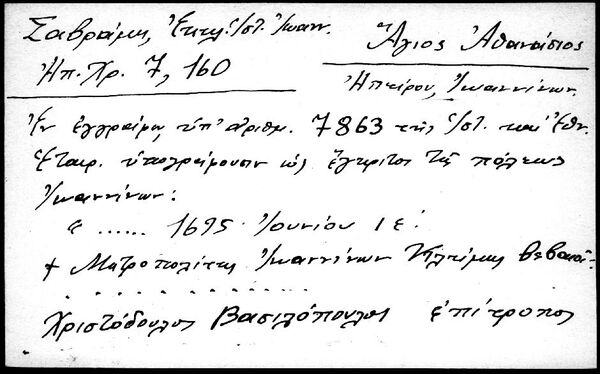 Σαβράμη, Ἐκκλ. Ἱστ. Ἰωανν.
Ἠπ. Χρ. 7, 160
Ἅγιος Ἀθανάσιος
Ἠπείρου, Ἰωαννίνων.
Ἐν ἐγγράφῳ ὑπ' ἀριθμ. 7863 τῆς Ἱστ. καὶ Ἐθν.
Ἑταιρ. ὑπογράφουσιν ὡς ἔγκριτοι τῆς πόλεως
Ἰωαννίνων:
" ...... 1695 Ἰουνίου ιε΄.
+ Μητροπολίτης Ἰωαννίνων Κλήμης βεβαιοῖ.
. . . . . . . . . . . . .
Χριστόδουλος Βασιλόπουλος ἐπίτροπος